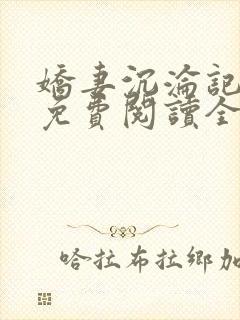 嬌妻沉淪記
免費閱讀全
哈拉布拉鄉加